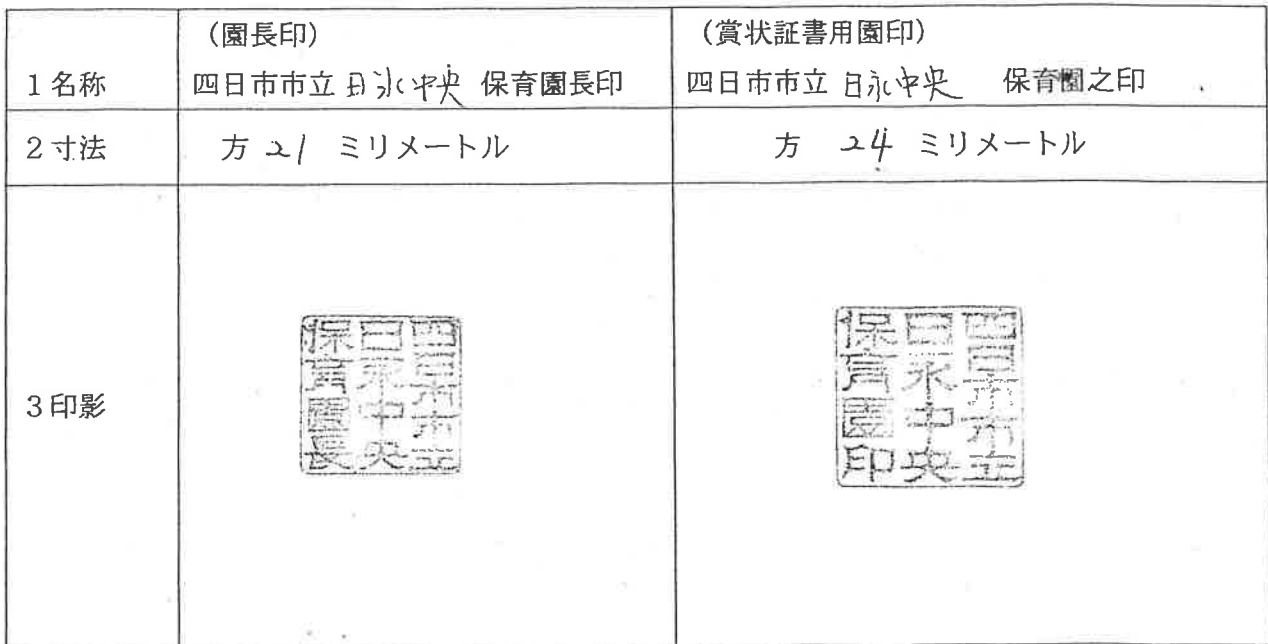 (園長印) (賞状証書用園印)
1名称 四日市市立 日永中央 保育園長印 四日市市立 日永中央 保育園之印
2寸法 方 21 ミリメートル 方 24 ミリメートル
3印影
四日市市立
日永中央
保育園長
四日市市立
日永中央
保育園印